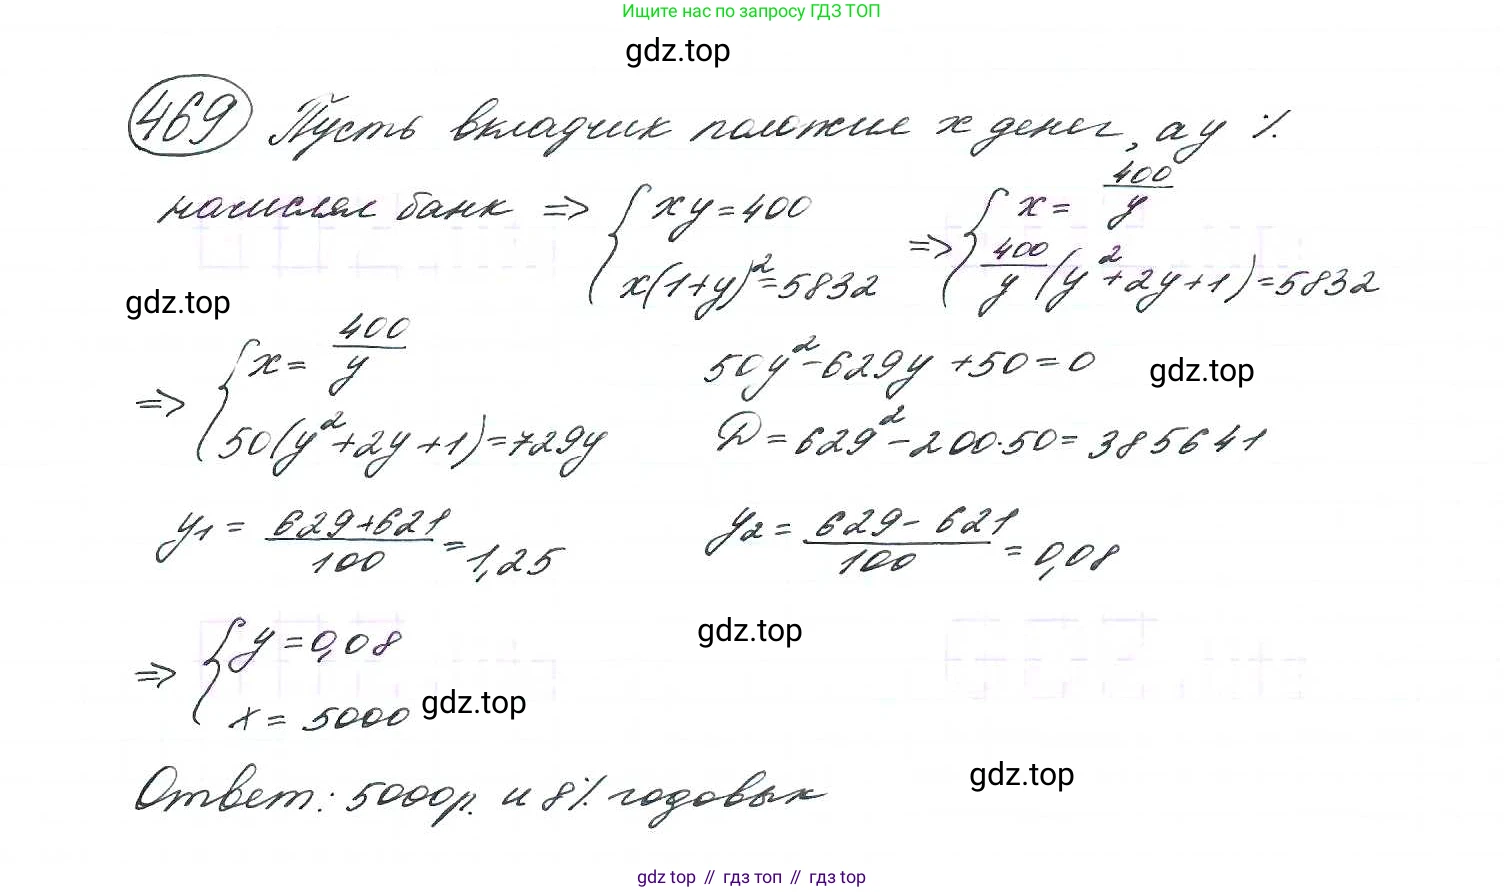 Ищите нас по запросу ГДЗ ТОП
gdz.top
469 Пусть вкладчик положил x денег, а y %
начислял банк => { xy = 400 => { x = 400/y
x(1+y)² = 5832 400/y (y²+2y+1) = 5832
gdz.top
=> { x = 400/y 50y² - 629y + 50 = 0
gdz.top
50(y²+2y+1) = 729y Д = 629² - 200·50 = 385641
y1 = (629+621)/100 = 1,25 y2 = (629-621)/100 = 0,08
=> { y = 0,08
gdz.top
x = 5000
gdz.top
gdz.top
Ответ: 5000р. и 8% годовых
gdz.top // гдз топ // гдз top